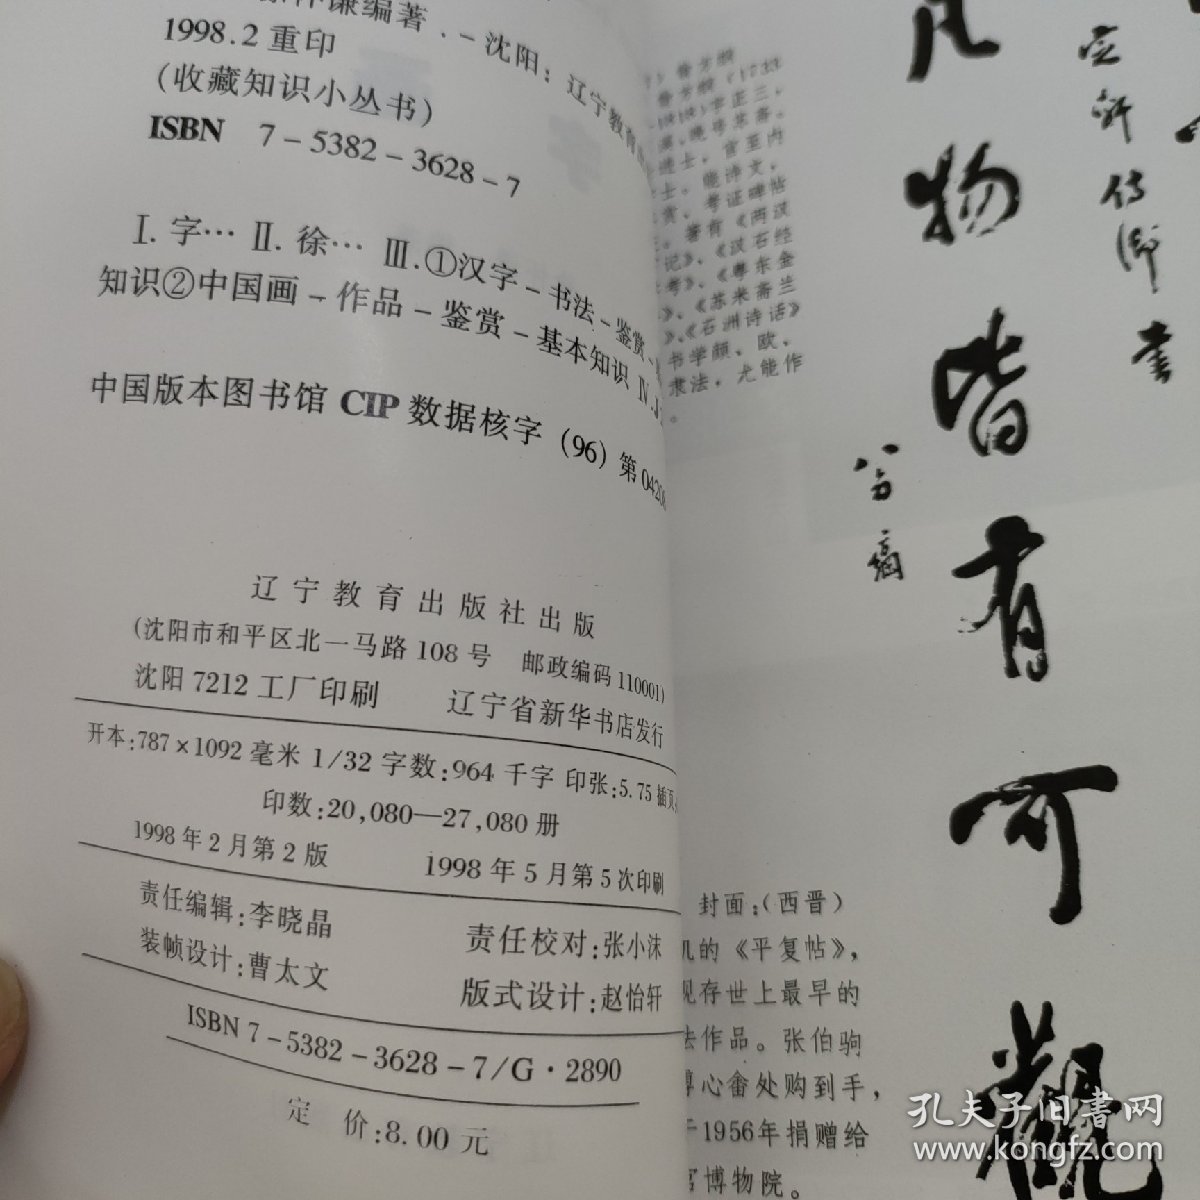 谦编著.－沈阳：辽宁教育
1998.2重印
(收藏知识小丛书)
ISBN 7－5382－3628－7
Ⅰ.字… Ⅱ.徐… Ⅲ.①汉字－书法－鉴赏－
知识②中国画－作品－鉴赏－基本知识 Ⅳ.J
中国版本图书馆 CIP 数据核字 (96) 第 0420
辽宁教育出版社出版
(沈阳市和平区北一马路 108 号 邮政编码 110001)
沈阳 7212 工厂印刷 辽宁省新华书店发行
开本:787×1092 毫米 1/32 字数:964 千字 印张:5.75 插页
印数:20,080—27,080 册
1998 年 2 月第 2 版 1998 年 5 月第 5 次印刷
责任编辑:李晓晶 责任校对:张小沫
装帧设计:曹太文 版式设计:赵怡轩
ISBN 7－5382－3628－7/G·2890
定 价:8.00 元
(1733
字正三,
晚号苏斋。
进士,官至内
士。能诗文,
赏、考证碑帖
著有《两汉
记》、《汉石经
考》、《粤东金
》、《苏米斋兰
》、《石洲诗话》
书学颜、欧、
隶法,尤能作
。
凡物皆有可观
封面:(西晋)
机的《平复帖》,
现存世上最早的
法作品。张伯驹
溥心畬处购到手,
于1956年捐赠给
宫博物院。
孔夫子旧书网
www.kongfz.com